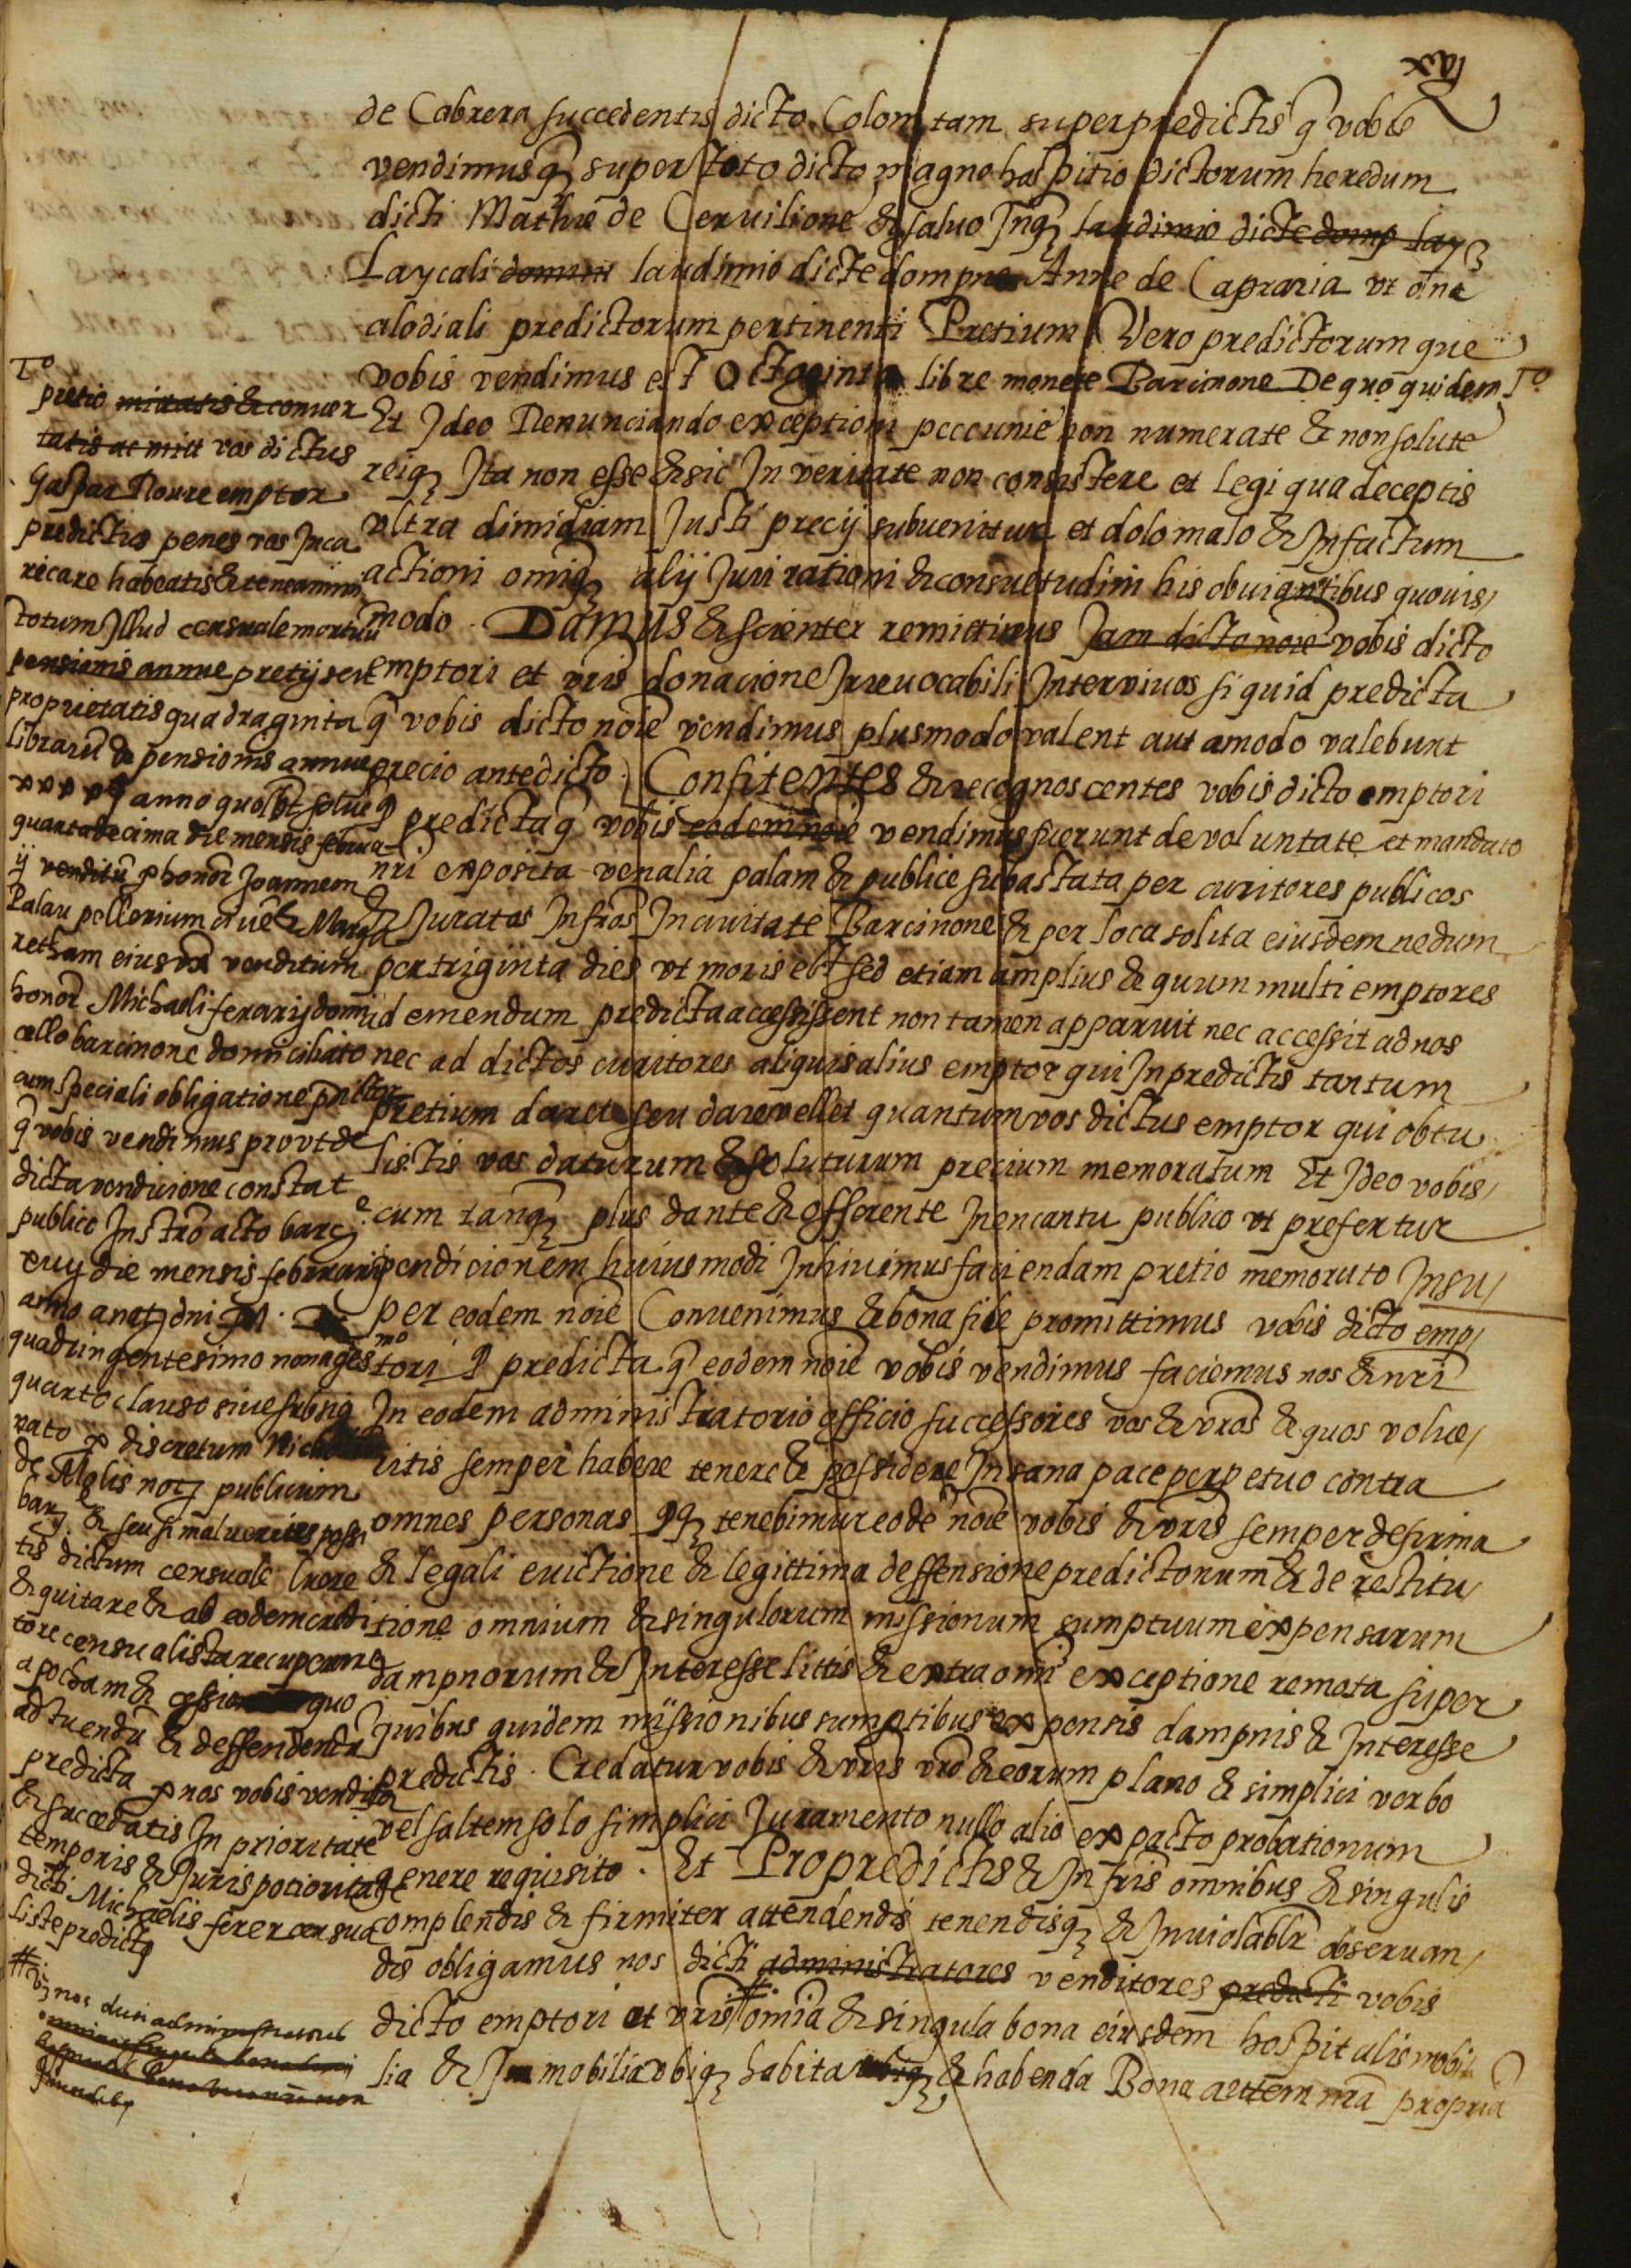 de Cabrera succedentis dicto Colom tam super predictis q̃ vobis
vendimus q̃ super toto dicto magno hospitio dictorum heredum
dicti Mathie de Cervilione & salvo Inq laudimio dicte domp lay
Laycali domini laudimio dicte dompne Anne de Capraria vt dña
alodiali predictorum pertinenti Pretium Vero predictorum que
vobis vendimus est Octaginta libre monete Barcinone De quo quidem To
Et Ideo Renunciando exceptioni peccunie non numerate & non solute
reiq Ita non esse & sic In veritate non consistere et legi qua deceptis
ultra dimidiam Justi precij subuenittur et dolo malo & In factum
actioni omiq alij Juri rationi & consuetudini his obuiantibus quouis
modo . Damus & scienter remittimus Jam dicto noie vobis dicto
emptori et vris donacione Irreuocabili Inter viuos si quid predicta
q̃ vobis dicto noie vendimus plus modo valent aut amodo valebunt
precio antedicto . Confitentes & recognoscentes vobis dicto emptori
q predicta q̃ vobis eodem noie vendimus fuerunt de voluntate et mandato
nri exposita venalia palam & publice subastata per curitores publicos
& Juratos Infros In ciuitate Barcinone & per loca solita eiusdem nedum
per triginta dies vt moris est sed etiam amplius & quum multi emptores
ad emendum predicta accessissent non tamen apparuit nec accessit ad nos
nec ad dictos curitores aliquis alius emptor qui In predictis tantum
pretium daret seu dare vellet quantum vos dictus emptor qui obtu
listis vos daturum & soluturum precium memoratum Et Ideo vobis
cum tanq plus dante & offerente In encantu publico vt prefertur
vendicionem huiusmodi Inhiuimus faciendam pretio memorato Insu
per eodem noie Conuenimus & bona fide promittimus vobis dicto emp
tori q predicta q̃ eodem noie vobis vendimus faciemus nos & nri
In eodem administratorio officio successores vos & vros & quos volue
ritis semper habere tenere & possidere In sana pace perpetuo contra
omnes personas qq tenebimur eodē noie vobis & vris semper de firma
& legali euictione & legittima deffensione predictorum & de restitu
tione omnium & singulorum missionum sumptuum expensarum
dampnorum & Interesse littis & extra omi exceptione remota super
quibus quidem missionibus sumptibus expensis dampnis & Interesse
predictis . Credatur vobis & vris vro & eorum plano & simplici verbo
vel saltem solo simplici Juramento nullo alio ex pacto probationum
genere requisito . Et Pro predictis & Infris omnibus & singulis
complendis & firmiter attendendis tenendisq & Inuiolablr obseruan
dis obligamus nos dicti administratores venditores predicti vobis
dicto emptori et vris # omia & singula bona eiusdem hospitalis mobi
lia & Inmobilia vbiq habita vbiq & habenda Bona autem nra propria
To
pretio miratis & conuer
tatis ac mitt vos dictus
Gaspar Roure emptor
predictus penes vos Inca
ricare habeatis & teneamini
totum Illud censuale mortuū
pensionis annue pretij seu
proprietatis quadraginta
librarū & pensionis annue
anno quolbt solue
quartadecima die mensis februa
ij venditū p honor Joannem
Palau pellerium & Marga
retham eius vx venditum
honor Michaeli ferarij domi
cello barcinone domiciliato
cum speciali obligatione
q̃ vobis vendimus prout de
dicta vendicione constat
publico Instro acto barce
die mensis februarij
anno a nat dni M.
quadringentesimo nonagesmo
quarto clauso siue subsig
nato p discretum Nicholaum
de Molis not publicum
barce & seu si malueritis possi
tis dictum censuale luere
& quitare & ab eodem credi
tore censualista recuperare
apocham & cessionem quo
ad tuendū & deffendendū
predicta p nos vobis vendita
& succedatis In prioritate
temporis & Juris potioritate
dicti Michaelis ferer censua
liste predicto
# nos dicti administratores
omnia & singula bona